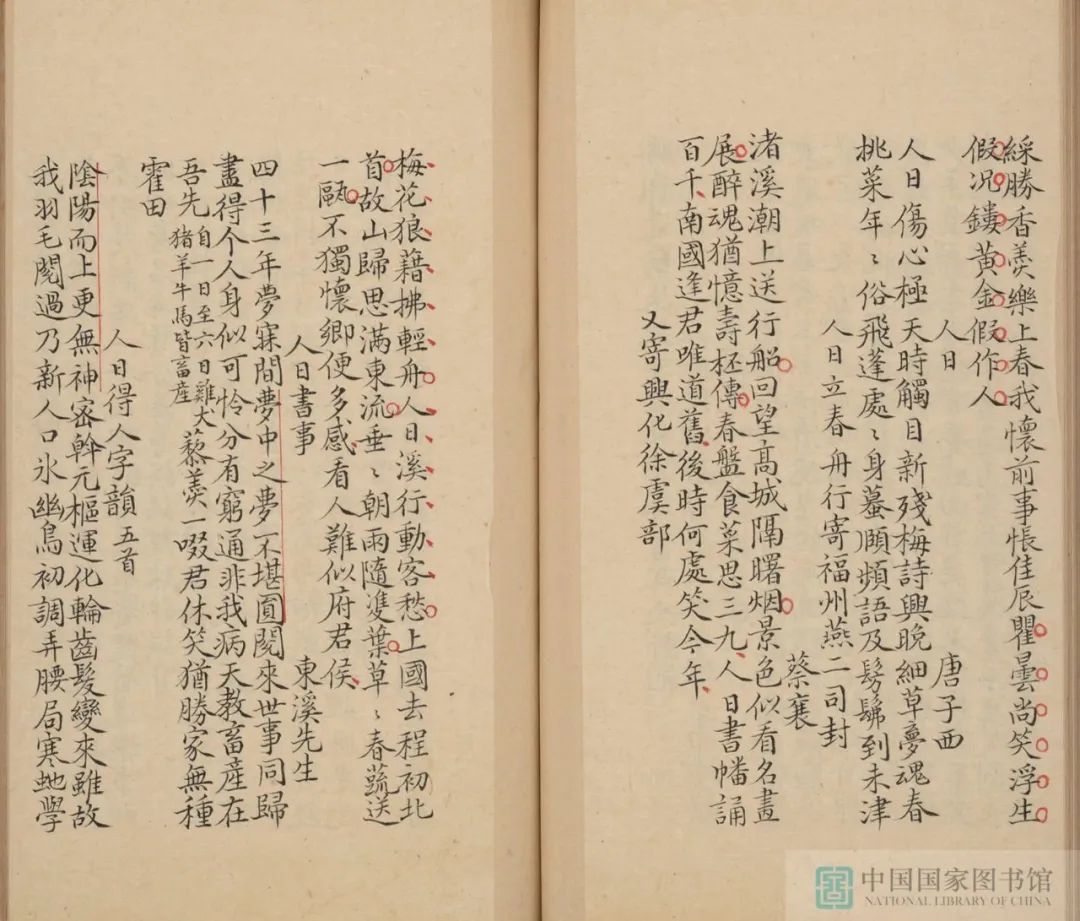 綵勝香羮樂上春我懷前事悵佳辰瞿曇尚笑浮生
假况鏤黃金假作人
人日
唐子西
人日傷心極天時觸目新殘梅詩興晚細草夢魂春
挑菜年〻俗飛蓬處〻身蟇頤頻語及髣髴到未津
人日立春舟行寄福州燕二司封
蔡襄
渚溪潮上送行船回望高城隔曙烟景色似看名畫
展醉魂猶憶壽柸傳春盤食菜思三九人日書幡誦
百千南國逢君唯道舊後時何處笑今年
又寄興化徐虞部
梅花狼藉拂輕舟人日溪行動客愁上國去程初北
首故山歸思滿東流垂〻朝雨隨雙葉草〻春蔬送
一甌不獨懷卿便多感看人難似府君侯
人日書事
東溪先生
四十三年夢寐間夢中之夢不堪圎閱來世事同歸
盡得个人身似可怜分有窮通非我病天教畜產在
吾先自一日至六日雞犬猪羊牛馬皆畜産藜羮一啜君休笑猶勝家無種
霍田
人日得人字韻五首
陰陽而上更無神密斡元樞運化輪齒髮變來雖故
我羽毛閱過乃新人口氷幽鳥初調弄腰局寒虵學
中国国家图书馆
NATIONAL LIBRARY OF CHINA